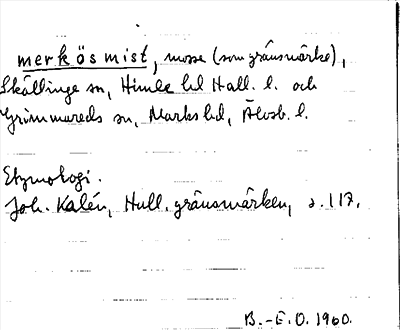 merkösmist, mosse (som gränsmärke),
Skällinge sn, Himle hd Hall. l. och
Grimmareds sn, Marks hd, Älvsb. l.
Etymologi.
Joh. Kalén, Hall. gränsmärken, s. 117.
B.-E. O. 1960.